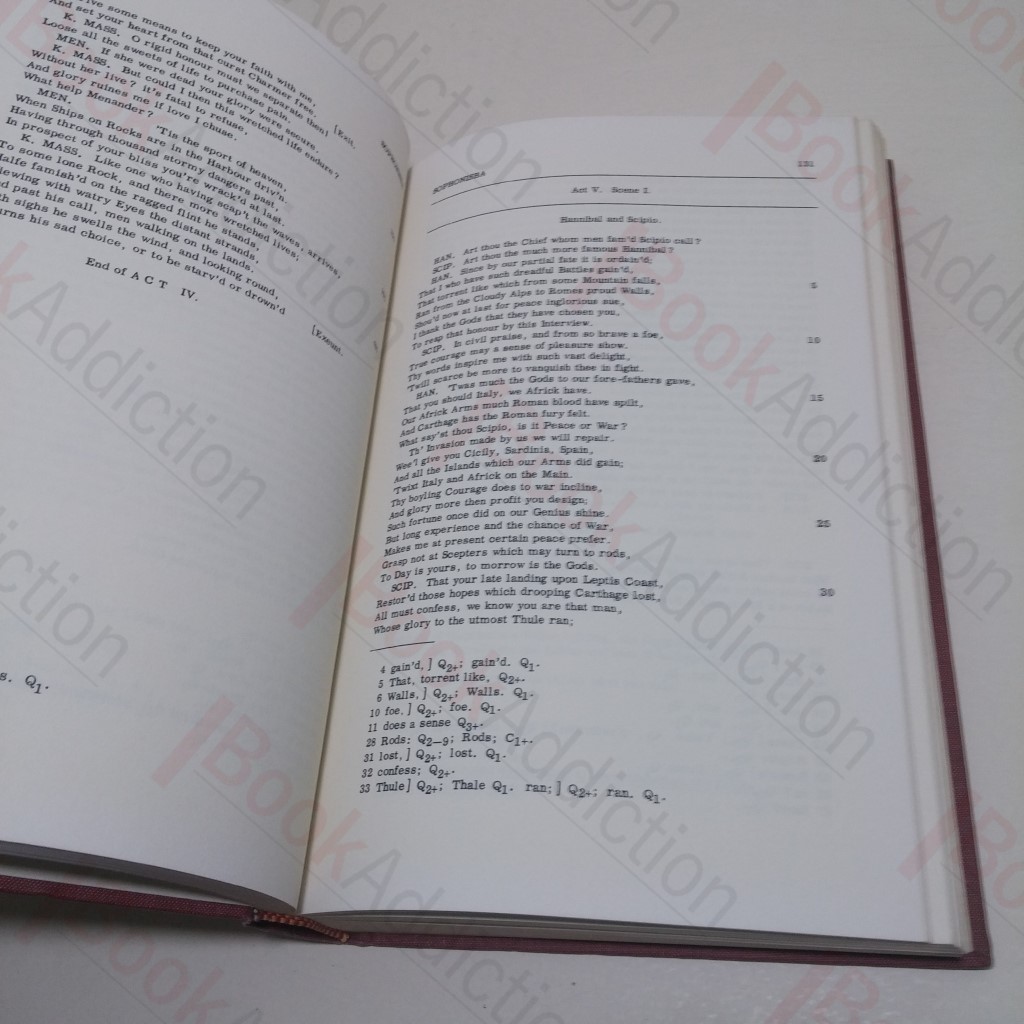 ive some means to keep your faith with me,
And set your heart from that curst Charmer free.
K. MASS. O rigid honour must we separate then!
Loose all the sweets of life to purchase pain.
MEN. If she were dead your glory were secure.
K. MASS. But could I then this wretched life endure?
Without her live? it's fatal to refuse,
And glory ruines me if love I chuse.
What help Menander? [Exit.
MEN. 'Tis the sport of heaven,
When Ships on Rocks are in the Harbour driv'n.
Having through thousand stormy dangers past,
In prospect of your bliss you're wrack'd at last.
K. MASS. Like one who having scap't the waves, arrives,
To some lone Rock, and there more wretched lives;
Halfe famish'd on the ragged flint he stands,
iewing with watry Eyes the distant strands,
d past his call, men walking on the lands.
th sighs he swells the wind, and looking round,
urns his sad choice, or to be starv'd or drown'd
[Exeunt.
End of ACT IV.
s. Q1.
SOPHONISBA 131
Act V. Scene I.
Hannibal and Scipio.
HAN. Art thou the Chief whom men fam'd Scipio call?
SCIP. Art thou the much more famous Hannibal?
HAN. Since by our partial fate it is ordain'd;
That I who have such dreadful Battles gain'd,
That torrent like which from some Mountain falls, 5
Ran from the Cloudy Alps to Romes proud Walls,
Shou'd now at last for peace inglorious sue,
I thank the Gods that they have chosen you,
To reap that honour by this Interview.
SCIP. In civil praise, and from so brave a foe, 10
True courage may a sense of pleasure show.
Thy words inspire me with such vast delight,
'Twill scarce be more to vanquish thee in fight.
HAN. 'Twas much the Gods to our fore-fathers gave,
That you should Italy, we Africk have. 15
Our Africk Arms much Roman blood have spilt,
And Carthage has the Roman fury felt.
What say'st thou Scipio, is it Peace or War?
Th' Invasion made by us we will repair.
Wee'l give you Cicily, Sardinia, Spain, 20
And all the Islands which our Arms did gain;
'Twixt Italy and Africk on the Main.
Thy boyling Courage does to war incline,
And glory more then profit you design;
Such fortune once did on our Genius shine. 25
But long experience and the chance of War,
Makes me at present certain peace prefer.
Grasp not at Scepters which may turn to rods,
To Day is yours, to morrow is the Gods.
SCIP. That your late landing upon Leptis Coast, 30
Restor'd those hopes which drooping Carthage lost,
All must confess, we know you are that man,
Whose glory to the utmost Thule ran;
4 gain'd,] Q2+; gain'd. Q1.
5 That, torrent like, Q2+.
6 Walls,] Q2+; Walls. Q1.
10 foe,] Q2+; foe. Q1.
11 does a sense Q3+.
28 Rods: Q2–9; Rods; C1+.
31 lost,] Q2+; lost. Q1.
32 confess; Q2+.
33 Thule] Q2+; Thale Q1. ran;] Q2+; ran. Q1.
BookAddiction